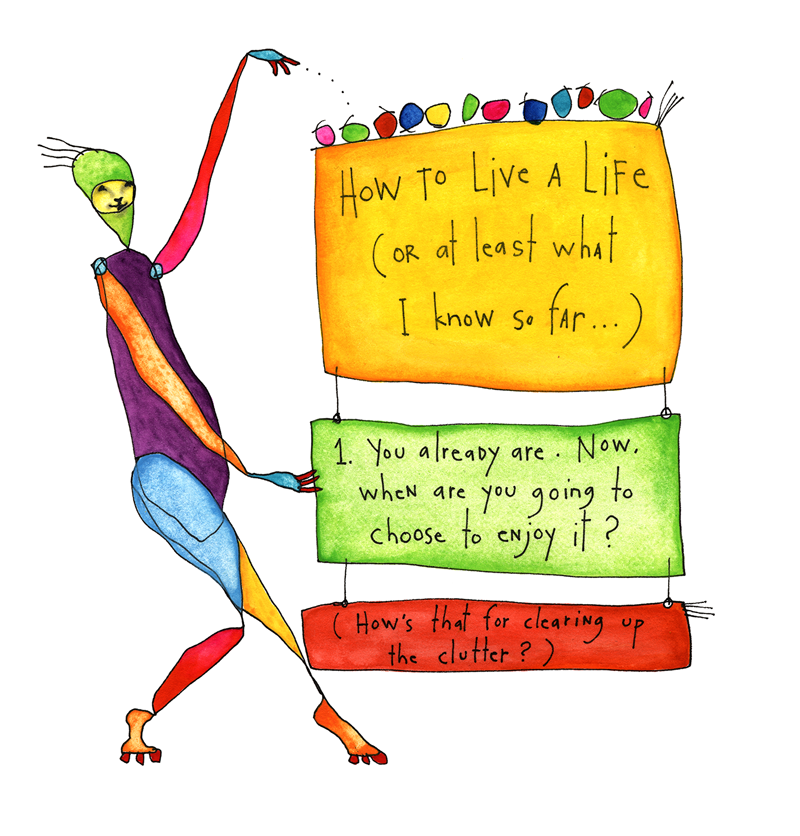 How to Live a Life
(or at least what
I know so far...)
1. You already are. Now,
when are you going to
choose to enjoy it?
(How's that for clearing up
the clutter?)